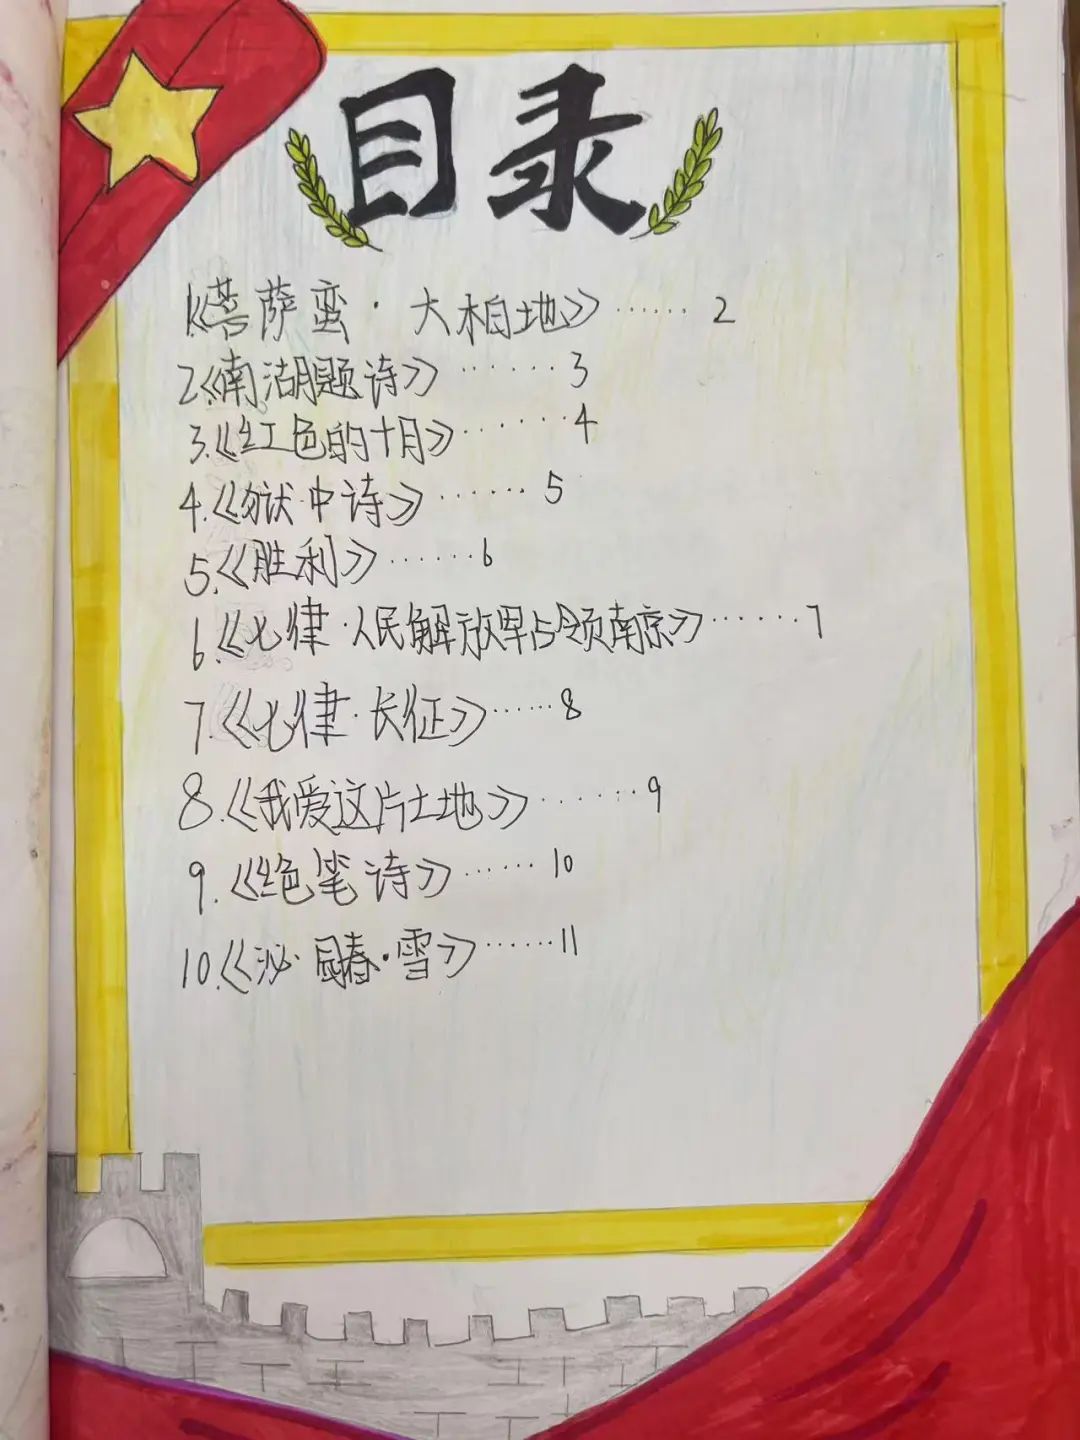 目录
1《菩萨蛮·大柏地》······2
2《南湖题诗》······3
3.《红色的十月》······4
4.《狱中诗》······5
5.《胜利》······6
6.《七律·人民解放军占领南京》······7
7.《七律·长征》······8
8.《我爱这片土地》······9
9.《绝笔诗》······10
10.《沁·园春·雪》······11